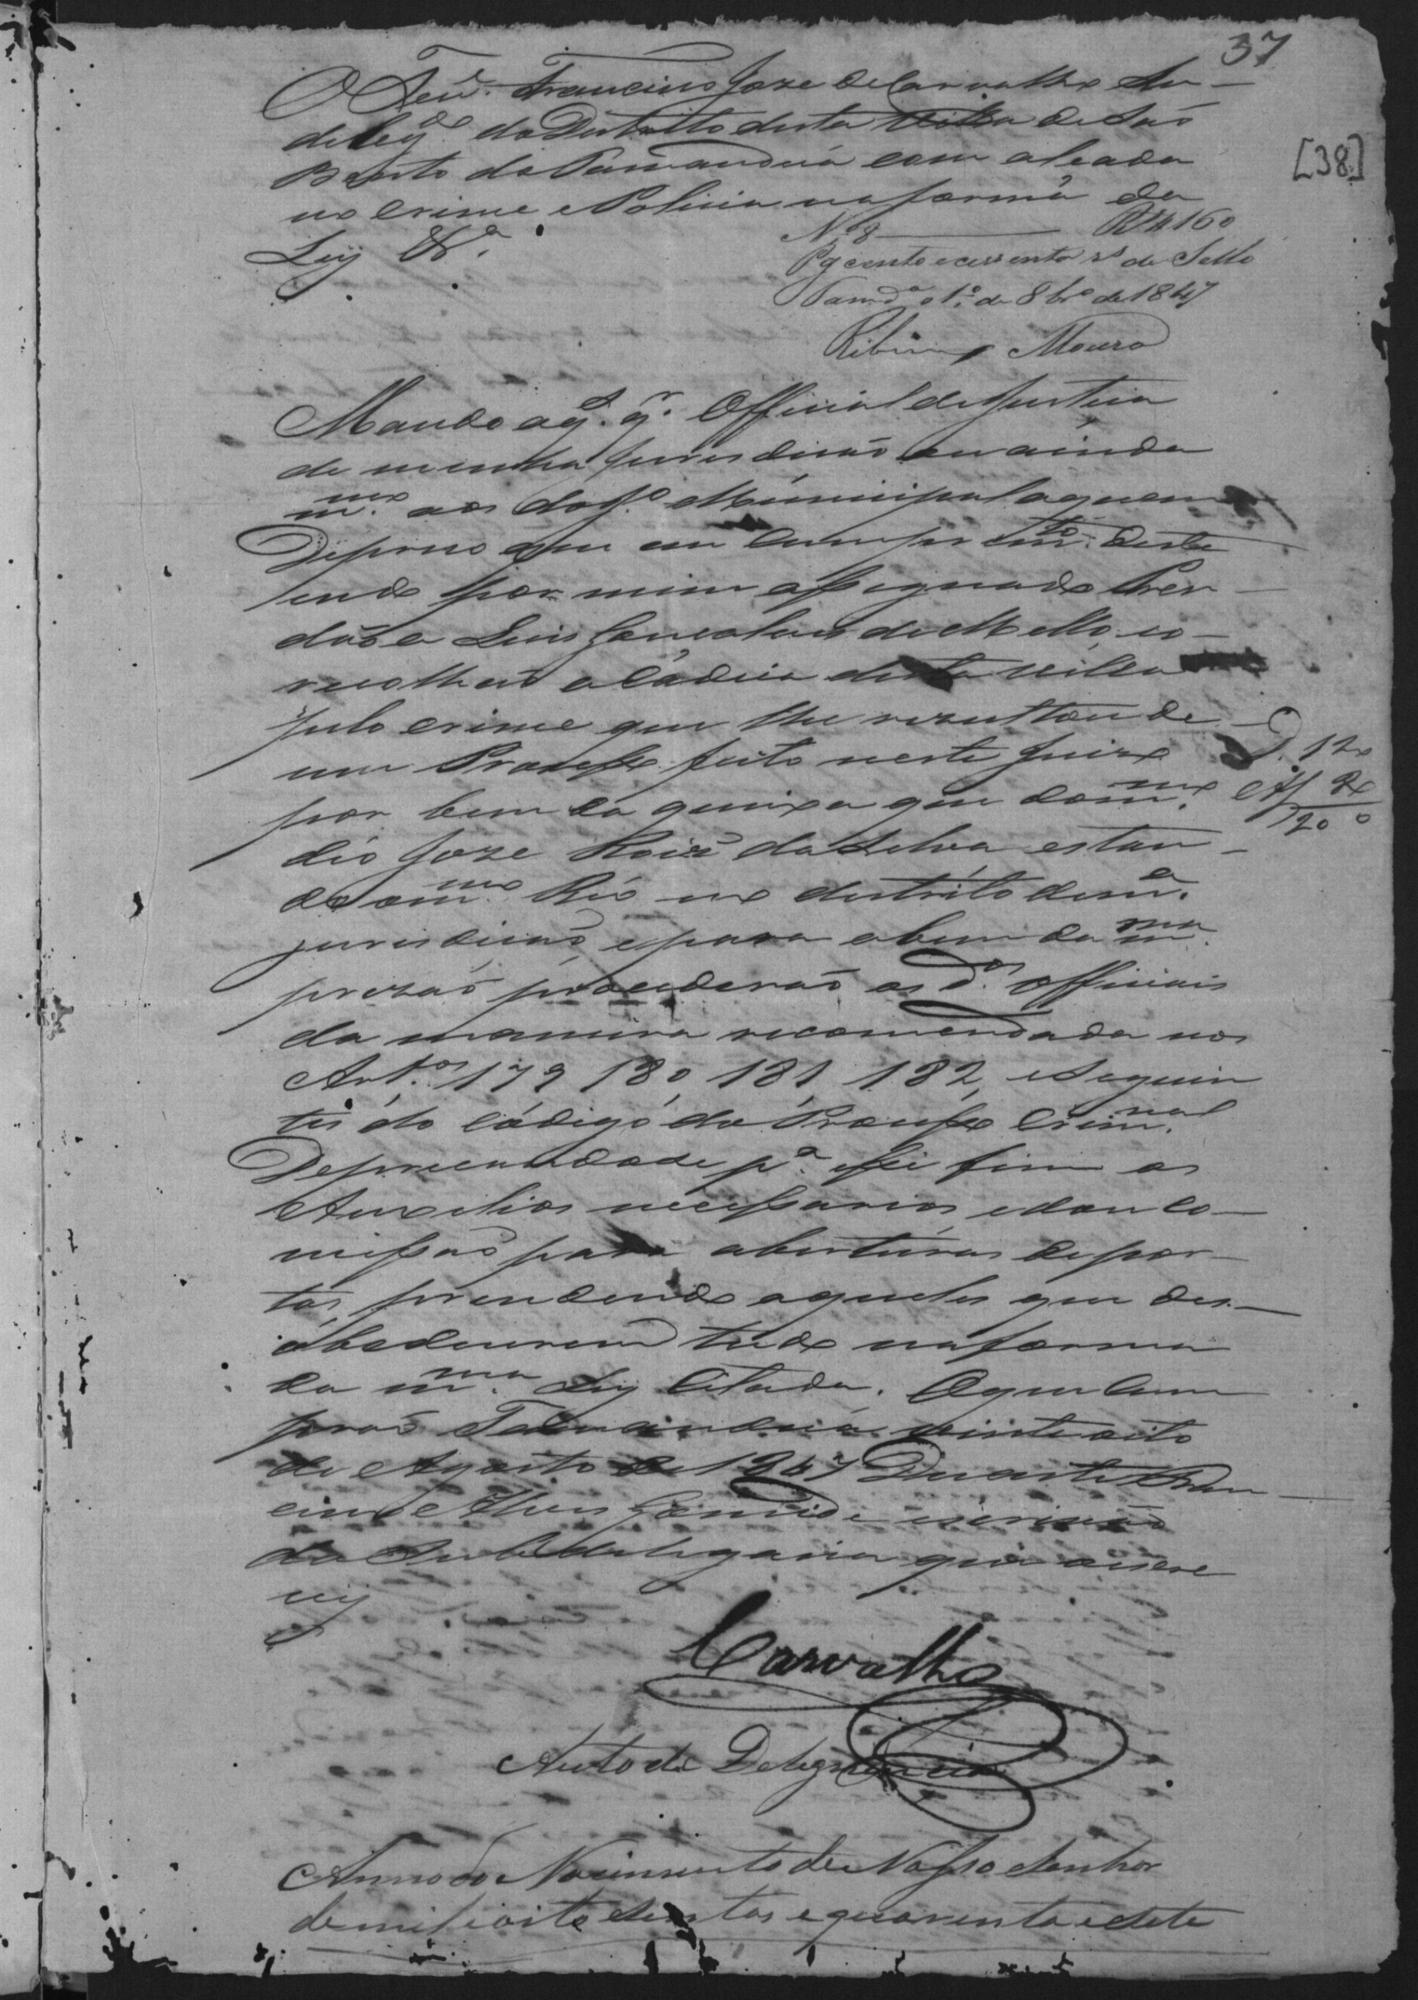 37
[38]
O Ten.e Francisco Joze de Carvalho Su-
deleg.do do Destritto desta Villa de São
Bento do Tamanduá com alsada
no crime e Policia na forma da
Ley &.a
N. 8 — R 160
Pg cento e cessenta rs de Sello
Tamd.a 1.o de 8br.o de 1847
Ribeiro Moura
Mando a q.l q.r Official de Justica
de minha jurisdicaõ ou ainda
m.mo aos do J.o Municipal a quem
Depreco que em Cumprim.to deste
indo por mim assignado Pren-
daõ a Luis Goncalves de Mello e o
recolhaõ a Cadeia desta Villa
pelo crime que lhe rezultou de
um Processo feito neste Juizo
por bem da queixa que do m.mo
deo Joze Roiz da Silva estan-
do o m.mo Réo no destrito de m.a
jurisdicaõ e para a bem da m.ma
prezaõ procederaõ os d.os officiais
da maneira recomendada nos
Art.os 179, 180, 181, 182, e seguin
tes do Código do Processo Crim.nal
Deprecandose p.a esse fim os
Auxilios necessarios e dou Co-
missaõ para aberturas de por-
tas prendendo aqueles que des-
obedecerem tudo na forma
da m.ma Ley Citada. O que Cum
praõ Tamanduá vinte oito
de Agosto de 1847 Duarte
escrivaõ
da Subdelegacia que a escre
vij
Carvalho
Auto de Deligencia
Anno do Nascimento de Nosso Senhor
de mil e oito Sentos e quarenta e Sete